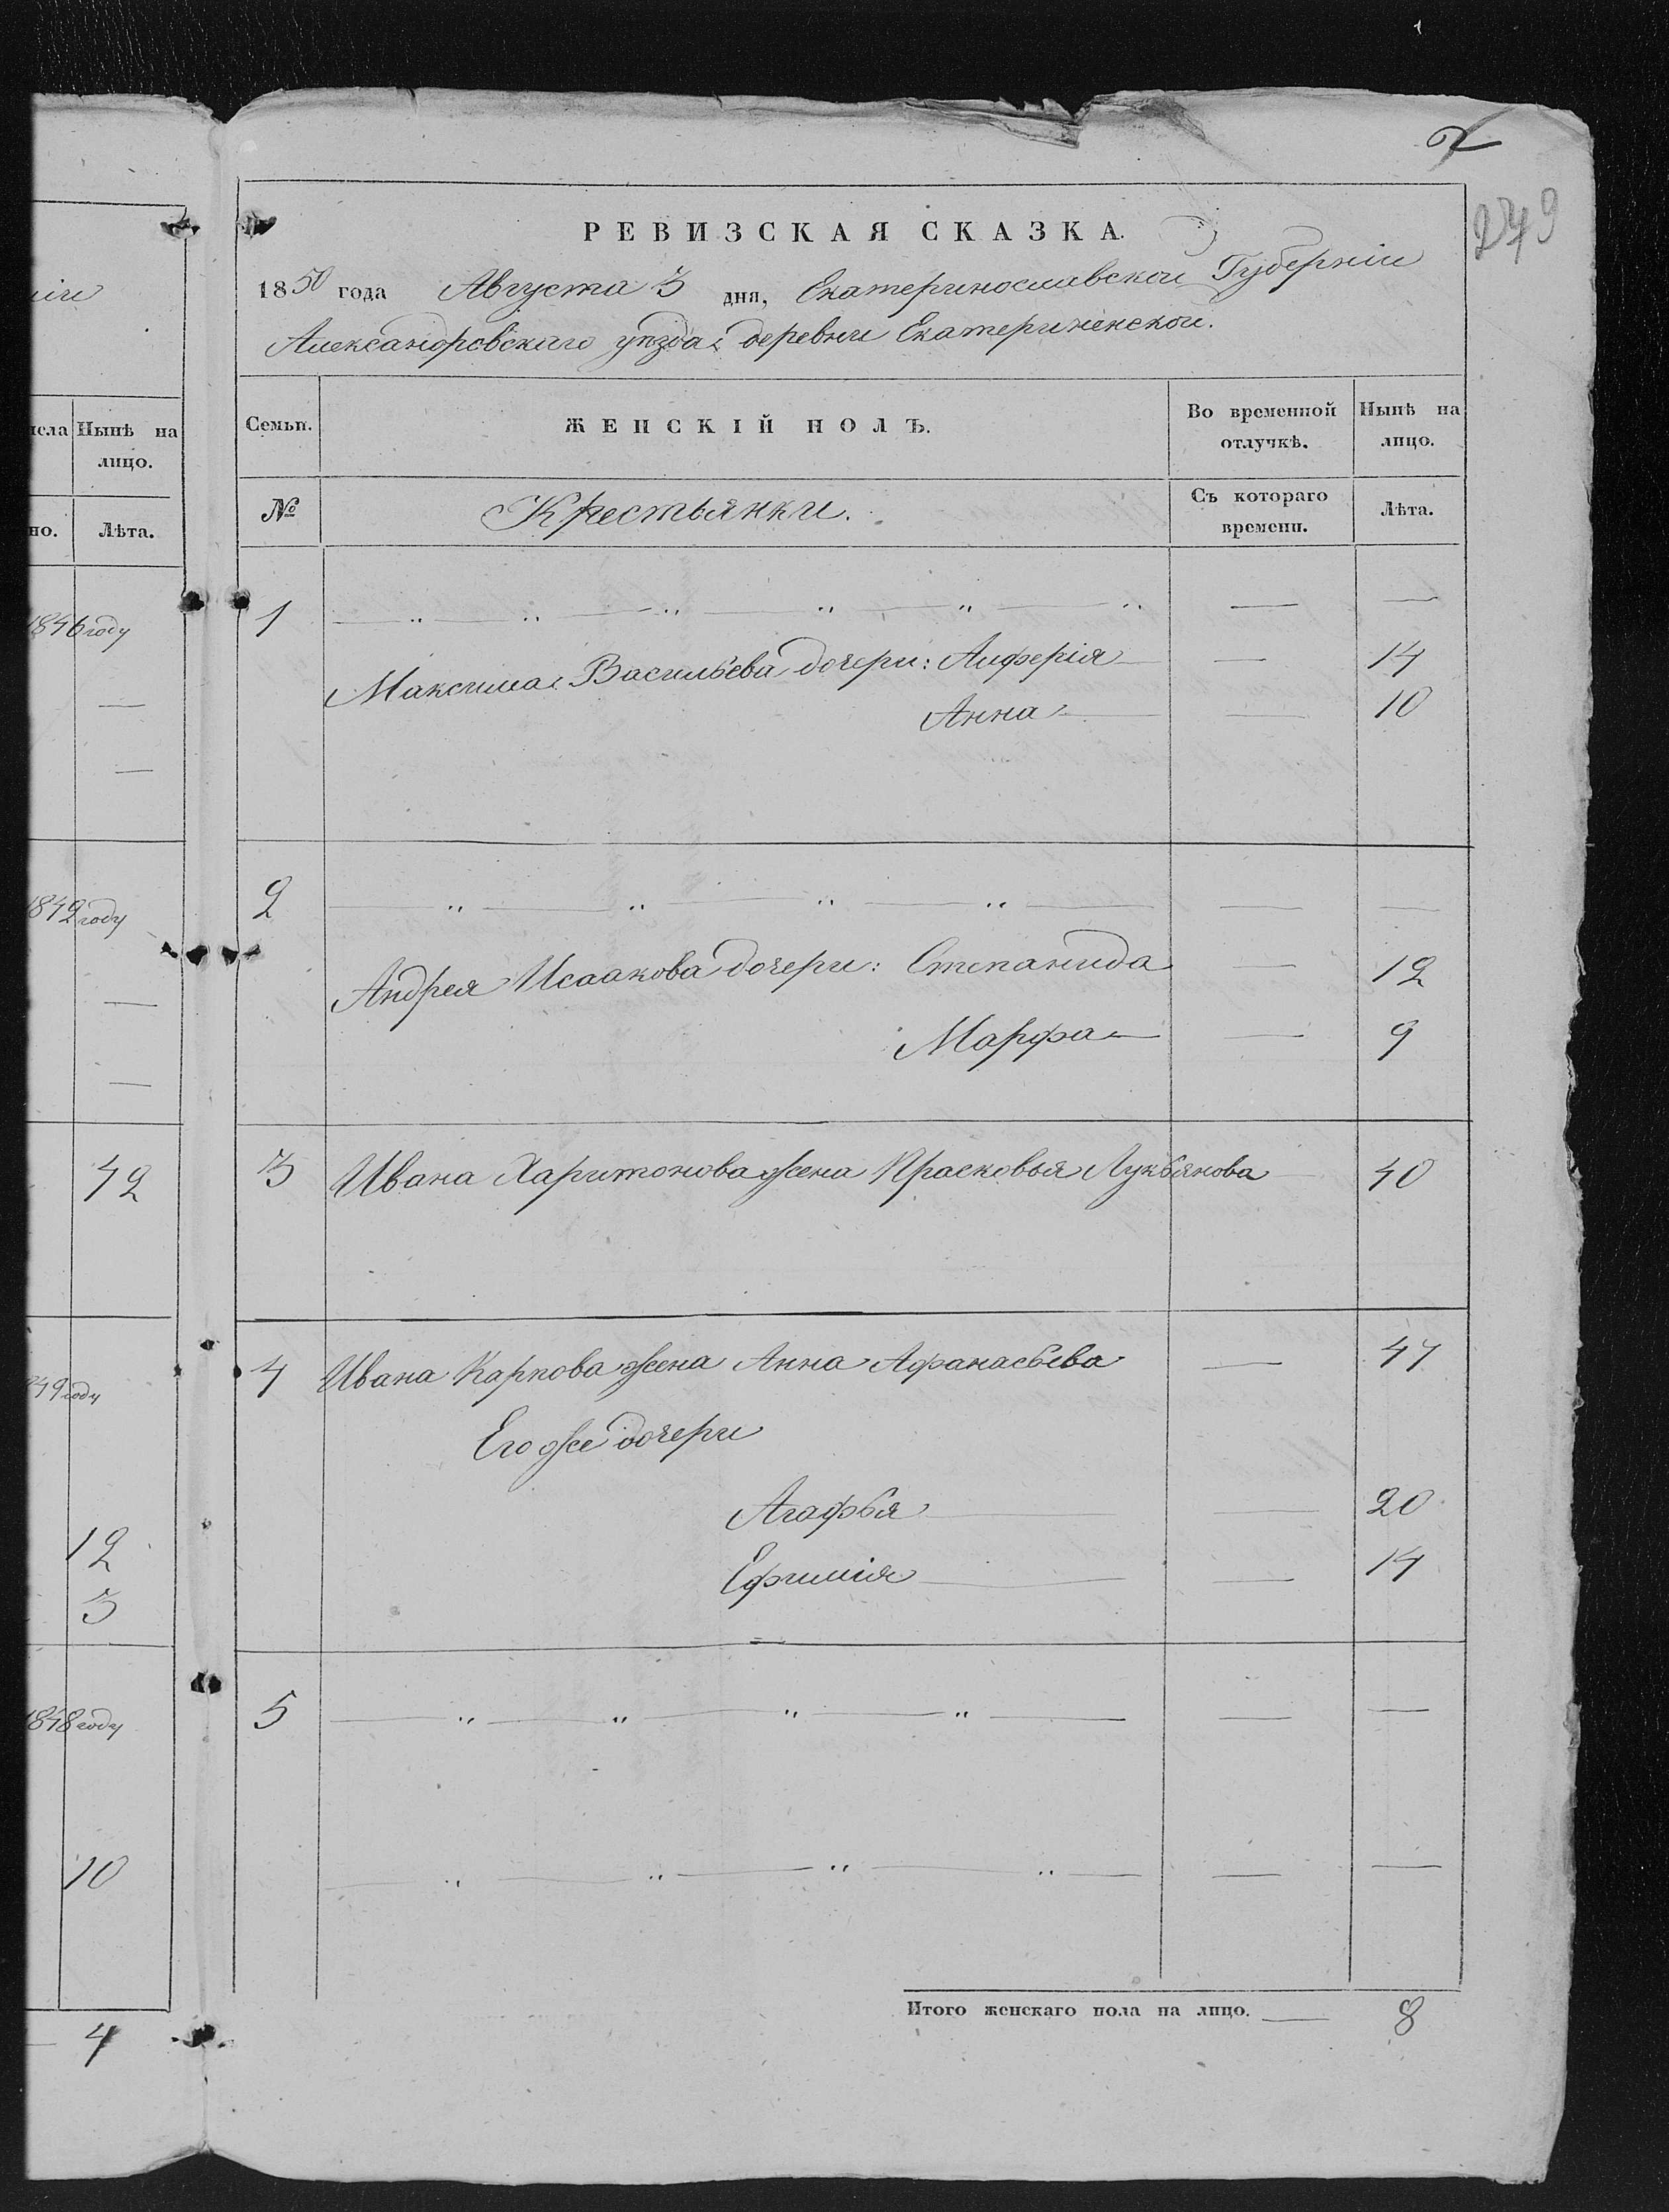 2
279
РЕВИЗСКАЯ СКАЗКА.
1850 года Августа 3 дня, Екатеринославской Губерніи
Александровскаго уѣзда деревни Екатерининской.
ніи
Семьи. ЖЕНСКІЙ ПОЛЪ. Во временной отлучкѣ. Нынѣ на лицо.
числа Нынѣ на лицо.
№ Крестьянки. Съ котораго времени. Лѣта.
но. Лѣта.
1846 году
1 — „ — „ — „ — „ — „ — „ — —
Максима Васильева дочери: Алферія — — 14
Анна — — 10
1849 году
2 — „ — „ — „ — „ — — —
Андрея Исаакова дочери: Степанида — 12
Марфа — — 9
42
3 Ивана Харитонова жена Прасковья Лукьянова — 40
849 году
4 Ивана Карпова жена Анна Афанасьева — 47
Его же дочери
Агафья — — 20
Ефимія — — 14
12
3
1848 году
5 — „ — „ — „ — „ — — —
— „ — „ — „ — „ — — —
10
Итого женскаго пола на лицо. — 8
— 4